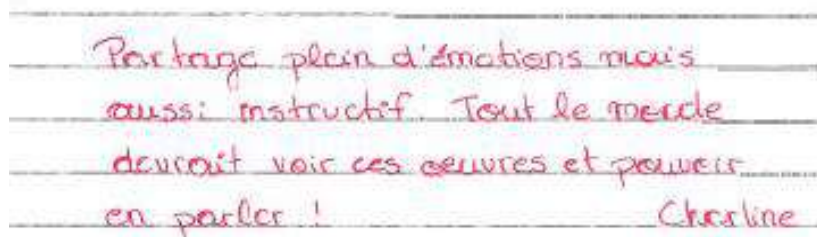 Partage plein d'émotions mais
aussi instructif. Tout le monde
devrait voir ces oeuvres et pouvoir
en parler ! Charline